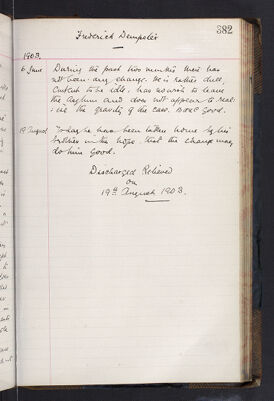 382
Frederick Dempster
1903.
6 June. During the past two months there has
not been any change. He is rather dull,
Content to be idle, has no wish to leave
the Asylum and does not appear to real-
ise the gravity of the case. Bod. Good.
19 August To-day he has been taken home by his
brother in the hope that the change may
do him good.
Discharged Relieved
on
19th August 1903.